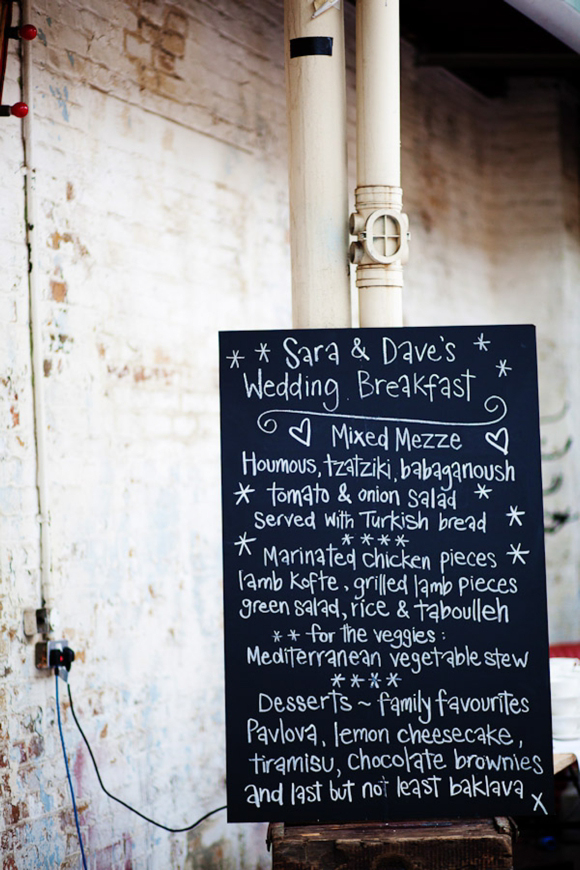 Sara & Dave's
Wedding Breakfast
Mixed Mezze
Houmous, tzatziki, babaganoush
tomato & onion salad
served with Turkish bread
Marinated chicken pieces
lamb kofte, grilled lamb pieces
green salad, rice & taboulleh
for the veggies:
Mediterranean vegetable stew
Desserts ~ family favourites
Pavlova, lemon cheesecake,
tiramisu, chocolate brownies
and last but not least baklava x